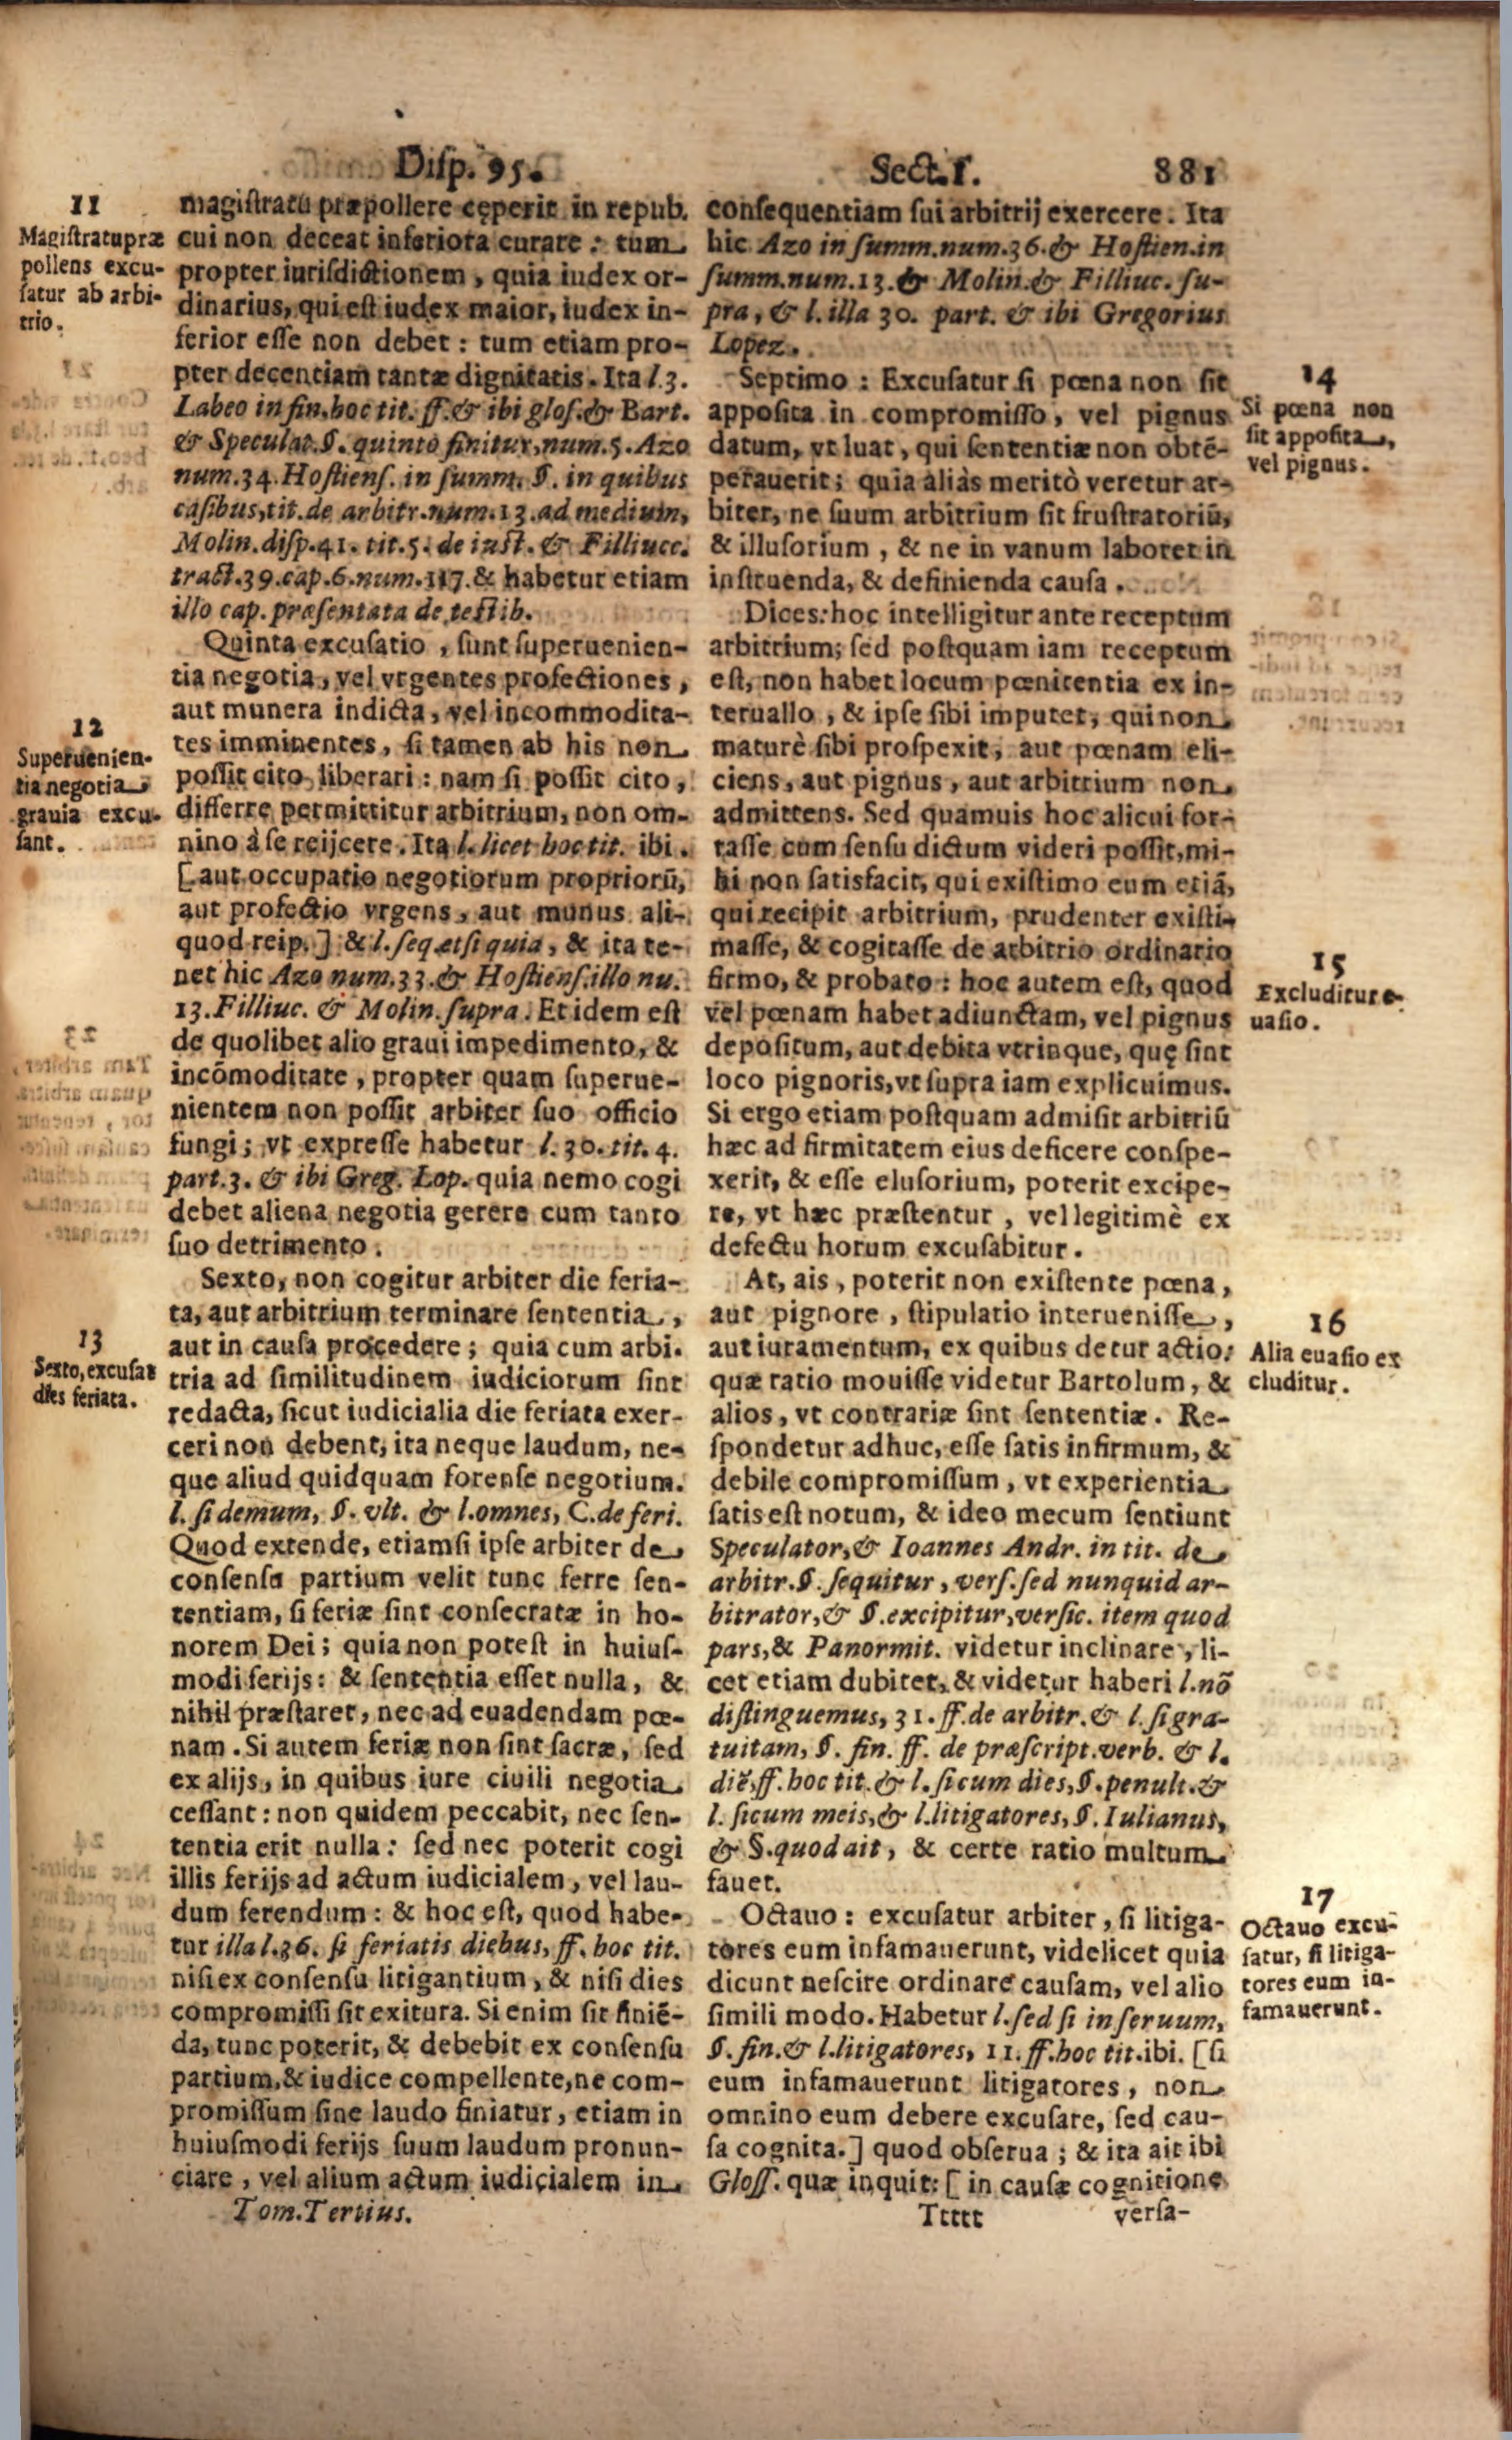 Disp. 95.
Sect. 1. 881
11
Magistratu præ
pollens excu-
satur ab arbi-
trio.
magistratu præpollere cęperit in repub.
cui non deceat inferiora curare: tum
propter iurisdictionem, quia iudex or-
dinarius, qui est iudex maior, iudex in-
ferior esse non debet: tum etiam pro-
pter decentiam tantæ dignitatis. Ita l.3.
Labeo in fin. hoc tit. ff. & ibi glos. & Bart.
& Speculat. §. quinto finitur, num.5. Azo
num.34. Hostiens. in summ. §. in quibus
casibus, tit. de arbitr. num.13. ad medium,
Molin. disp.41. tit.5. de iust. & Filliucc.
tract.39.cap.6.num.117. & habetur etiam
illo cap. præsentata de testib.
Quinta excusatio, sunt superuenien-
tia negotia, vel vrgentes profectiones,
aut munera indicta, vel incommodita-
12
Superuenien-
tia negotia
grauia excu-
sant.
tes imminentes, si tamen ab his non
possit cito liberari: nam si possit cito,
differre permittitur arbitrium, non om-
nino à se reijcere. Ita l. licet hoc tit. ibi.
[aut occupatio negotiorum propriorũ,
aut profectio vrgens, aut munus ali-
quod reip.] & l. seq. et si quia, & ita te-
net hic Azo num.33. & Hostiens. illo nu.
13. Filliuc. & Molin. supra. Et idem est
de quolibet alio graui impedimento, &
incõmoditate, propter quam superue-
nientem non possit arbiter suo officio
fungi; vt expresse habetur l.30. tit.4.
part.3. & ibi Greg. Lop. quia nemo cogi
debet aliena negotia gerere cum tanto
suo detrimento.
Sexto, non cogitur arbiter die feria-
ta, aut arbitrium terminare sententia,
13
Sexto, excusat
dies feriata.
aut in causa procedere; quia cum arbi-
tria ad similitudinem iudiciorum sint
redacta, sicut iudicialia die feriata exer-
ceri non debent, ita neque laudum, ne-
que aliud quidquam forense negotium.
l. si demum, §. vlt. & l. omnes, C. de feri.
Quod extende, etiamsi ipse arbiter de
consensu partium velit tunc ferre sen-
tentiam, si feriæ sint consecratæ in ho-
norem Dei; quia non potest in huius-
modi ferijs: & sententia esset nulla, &
nihil præstaret, nec ad euadendam pœ-
nam. Si autem feriæ non sint sacræ, sed
ex alijs, in quibus iure ciuili negotia
cessant: non quidem peccabit, nec sen-
tentia erit nulla: sed nec poterit cogi
illis ferijs ad actum iudicialem, vel lau-
dum ferendum: & hoc est, quod habe-
tur illa l.36. si feriatis diebus, ff. hoc tit.
nisi ex consensu litigantium, & nisi dies
compromissi sit exitura. Si enim sit finiẽ-
da, tunc poterit, & debebit ex consensu
partium, & iudice compellente, ne com-
promissum sine laudo finiatur, etiam in
huiusmodi ferijs suum laudum pronun-
ciare, vel alium actum iudicialem in
Tom. Tertius.
consequentiam sui arbitrij exercere. Ita
hic Azo in summ. num.36. & Hostien. in
summ. num.13. & Molin. & Filliuc. su-
pra, & l. illa 30. part. & ibi Gregorius
Lopez.
14
Si pœna non
sit apposita,
vel pignus.
Septimo: Excusatur si pœna non sit
apposita in compromisso, vel pignus
datum, vt luat, qui sententiæ non obtẽ-
perauerit; quia aliàs meritò veretur ar-
biter, ne suum arbitrium sit frustratoriũ,
& illusorium, & ne in vanum laboret in
instruenda, & definienda causa.
Dices: hoc intelligitur ante receptum
arbitrium; sed postquam iam receptum
est, non habet locum pœnitentia ex in-
teruallo, & ipse sibi imputet, qui non
maturè sibi prospexit, aut pœnam eli-
ciens, aut pignus, aut arbitrium non
admittens. Sed quamuis hoc alicui for-
tasse cum sensu dictum videri possit, mi-
hi non satisfacit, qui existimo eum etiã,
qui recipit arbitrium, prudenter existi-
masse, & cogitasse de arbitrio ordinario
15
Excluditur e-
uasio.
firmo, & probato: hoc autem est, quod
vel pœnam habet adiunctam, vel pignus
depositum, aut debita vtrinque, quę sint
loco pignoris, vt supra iam explicuimus.
Si ergo etiam postquam admisit arbitriũ
hæc ad firmitatem eius deficere conspe-
xerit, & esse elusorium, poterit excipe-
re, vt hæc præstentur, vel legitimè ex
defectu horum excusabitur.
At, ais, poterit non existente pœna,
aut pignore, stipulatio interuenisse,
16
Alia euasio ex
cluditur.
aut iuramentum, ex quibus detur actio:
quæ ratio mouisse videtur Bartolum, &
alios, vt contrariæ sint sententiæ. Re-
spondetur adhuc, esse satis infirmum, &
debile compromissum, vt experientia
satis est notum, & ideo mecum sentiunt
Speculator, & Ioannes Andr. in tit. de
arbitr. §. sequitur, vers. sed nunquid ar-
bitrator, & §. excipitur, versic. item quod
pars, & Panormit. videtur inclinare, li-
cet etiam dubitet, & videtur haberi l. nõ
distinguemus, 31. ff. de arbitr. & l. si gra-
tuitam, §. fin. ff. de præscript. verb. & l.
diẽ, ff. hoc tit. & l. si cum dies, §. penult. &
l. si cum meis, & l. litigatores, §. Iulianus,
& §. quod ait, & certe ratio multum
fauet.
17
Octauo excu-
satur, si litiga-
tores eum in-
famauerunt.
Octauo: excusatur arbiter, si litiga-
tores eum infamauerunt, videlicet quia
dicunt nescire ordinare causam, vel alio
simili modo. Habetur l. sed si in seruum,
§. fin. & l. litigatores, 11. ff. hoc tit. ibi. [si
eum infamauerunt litigatores, non
omnino eum debere excusare, sed cau-
sa cognita.] quod obserua; & ita ait ibi
Gloss. quæ inquit: [in causæ cognitione
Ttttt versa-